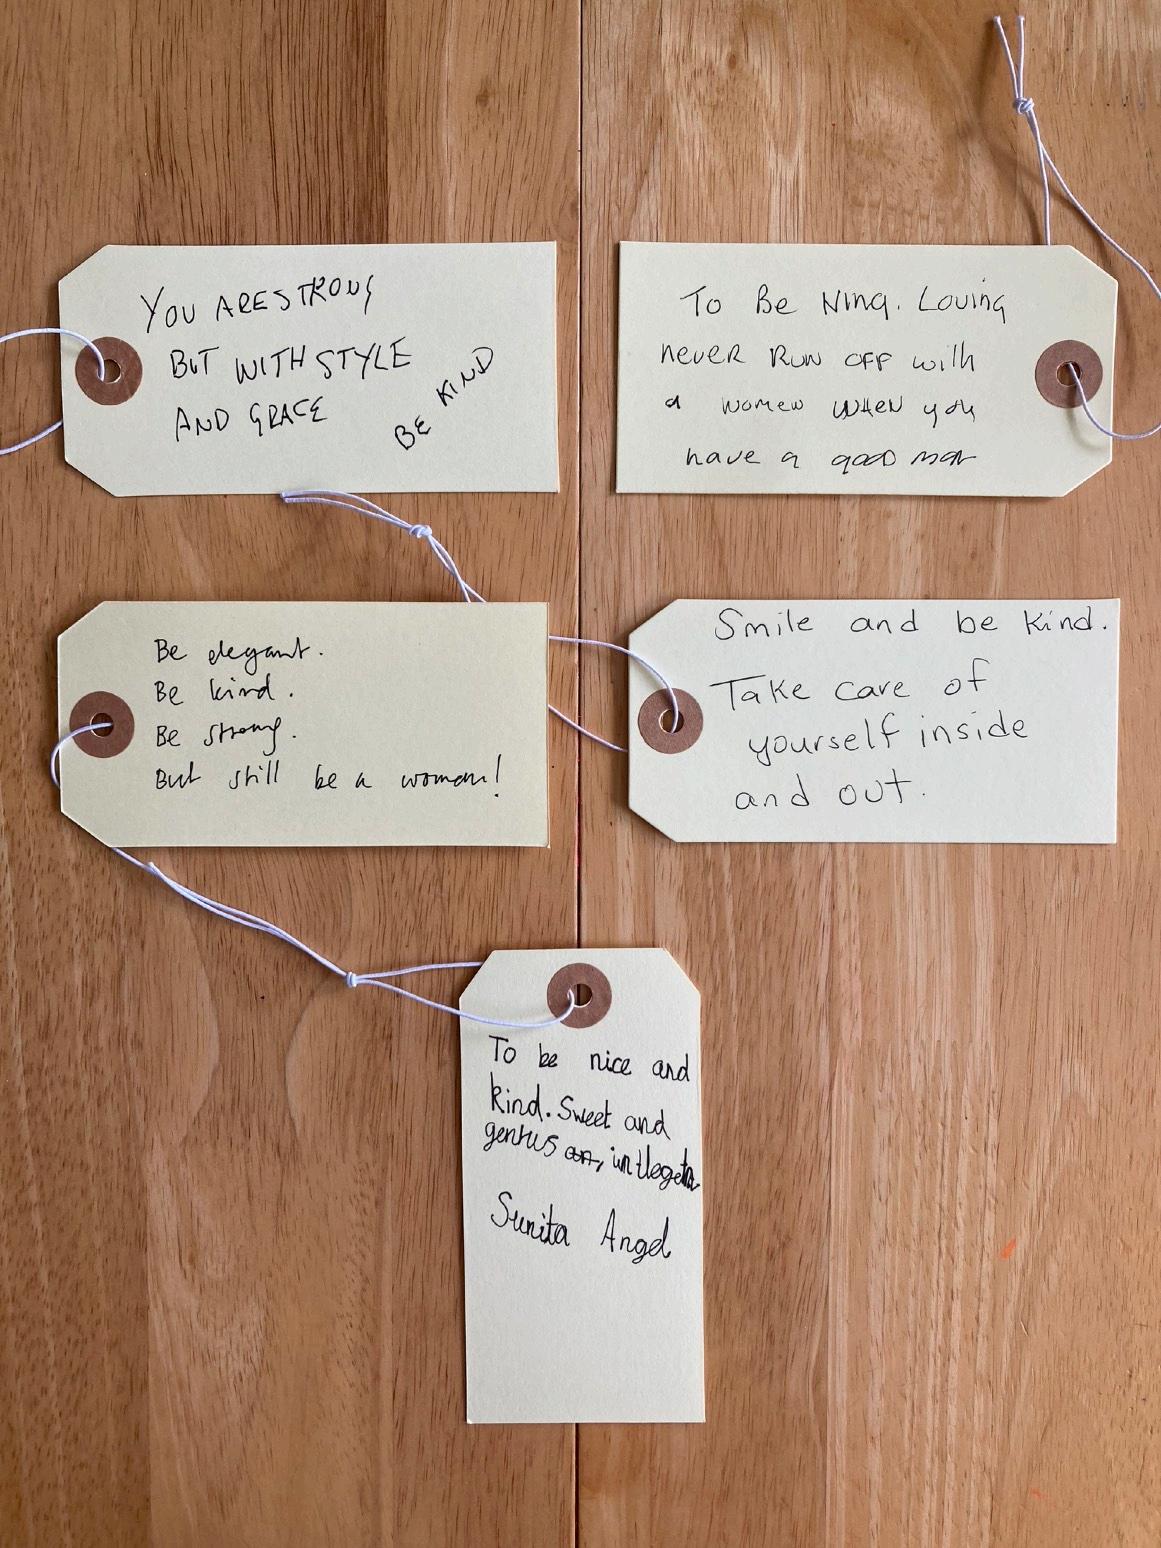 YOU ARE STRONG
BUT WITH STYLE
AND GRACE
BE KIND
To Be Nina. Loving
never Run off with
a women when you
have a good man
Be elegant.
Be kind.
Be strong.
But still be a woman!
Smile and be kind.
Take care of
yourself inside
and out.
To be nice and
kind. Sweet and
Sunita Angel